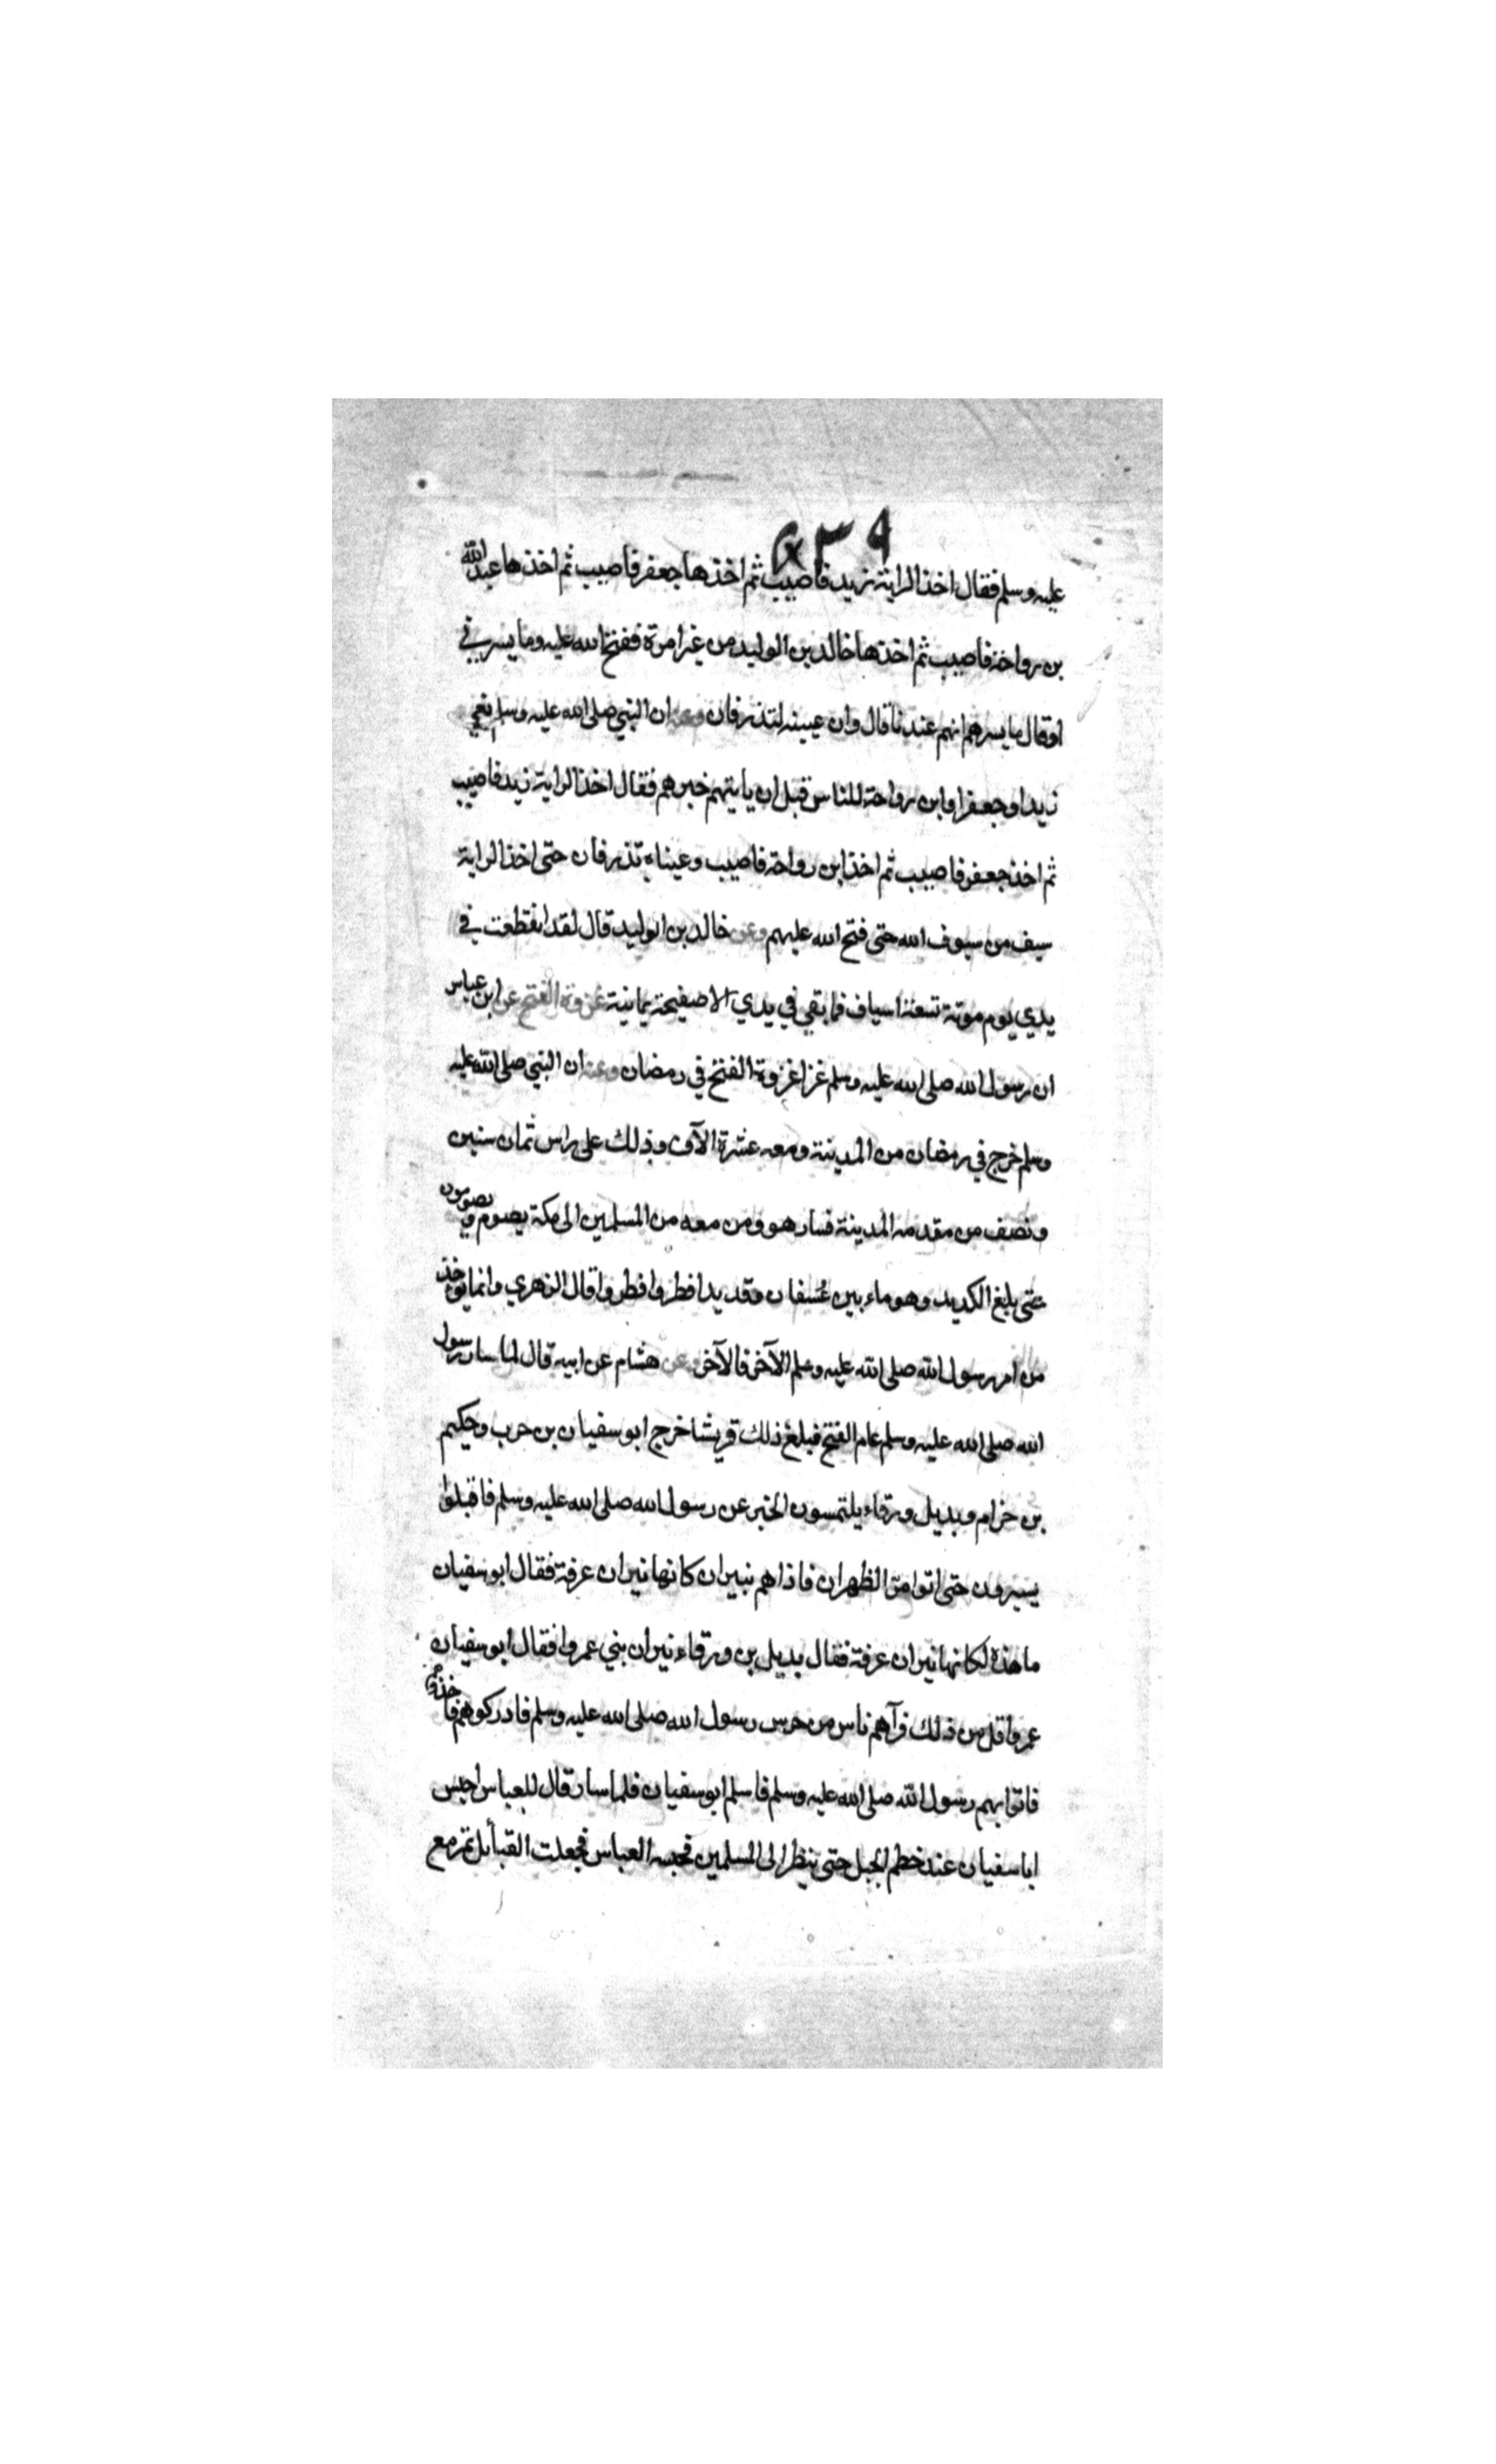 ٩٣٨
عليه وسلم فقال اخذ الراية زيد فاصيب ثم اخذها جعفر فاصيب ثم اخذها عبد الله
بن رواحة فاصيب ثم اخذها خالد بن الوليد من غير امرة ففتح الله عليه وما يسرني
او قال ما يسرهم انهم عندنا قال وان عينيه لتذرفان وعنه ان النبي صلى الله عليه وسلم نعي
زيدا وجعفرا وابن رواحة للناس قبل ان ياتيهم خبرهم فقال اخذ الراية زيد فاصيب
ثم اخذ جعفر فاصيب ثم اخذ ابن رواحة فاصيب وعيناه تذرفان حتى اخذ الراية
سيف من سيوف الله حتى فتح الله عليهم وعن خالد بن الوليد قال لقد انقطعت في
يدي يوم موتة تسعة اسياف فما بقي في يدي الا صفيحة يمانية غزوة الفتح عن ابن عباس
ان رسول الله صلى الله عليه وسلم غزا غزوة الفتح في رمضان وعنه ان النبي صلى الله عليه
وسلم خرج في رمضان من المدينة ومعه عشرة الآف وذلك على راس ثمان سنين
ونصف من مقدمه المدينة فسار هو ومن معه من المسلمين الى مكة يصوم ويصومون
حتى بلغ الكديد وهو ماء بين عُسفان وقديد افطر وافطروا قال الزهري وانما يوخذ
من امر رسول الله صلى الله عليه وسلم الآخر فالآخر وعن هشام عن ابيه قال لما سار رسول
الله صلى الله عليه وسلم عام الفتح فبلغ ذلك قريشا خرج ابو سفيان بن حرب وحكيم
بن حزام وبديل ورقاء يلتمسون الخبر عن رسول الله صلى الله عليه وسلم فاقبلوا
يسيرون حتى اتوا مرّ الظهران فاذا هم بنيران كانها نيران عرفة فقال ابو سفيان
ما هذه لكانها نيران عرفة فقال بديل بن ورقاء نيران بني عمرو فقال ابو سفيان
عمرو اقل من ذلك فرآهم ناس من حرس رسول الله صلى الله عليه وسلم فادركوهم فاخذوهم
فاتوا بهم رسول الله صلى الله عليه وسلم فاسلم ابو سفيان فلما سار قال للعباس احبس
ابا سفيان عند خطم الجبل حتى ينظر الى المسلمين فحبسه العباس فجعلت القبائل تمر مع